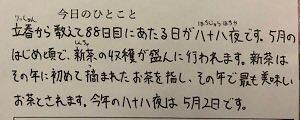 今日のひとこと
りっしゅん はちじゅうはちや
立春から数えて88日目にあたる日が八十八夜です。5月の
しんちゃ
はじめ頃で、新茶の収穫が盛んに行われます。新茶は
その年に初めて摘まれたお茶を指し、その年で最も美味しい
お茶とされます。今年の八十八夜は5月2日です。